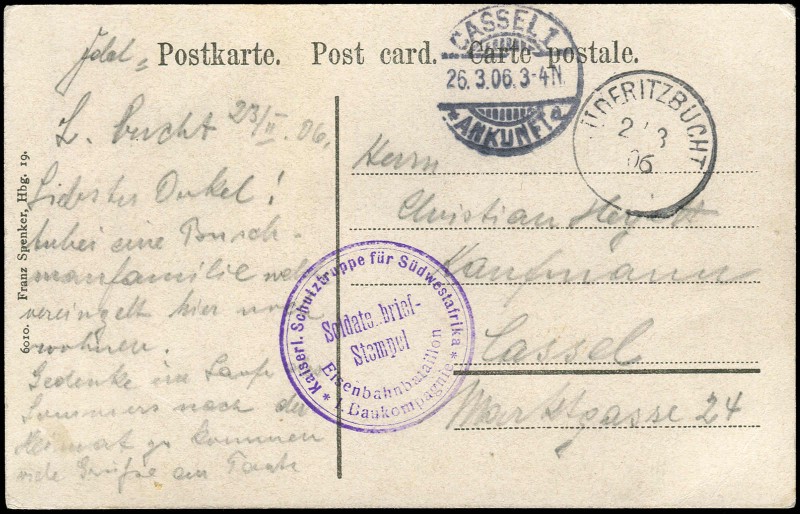 Postkarte. Post card. Carte postale.
CASSEL 1
26.3.06.3-4N
* ANKUNFT *
LÜDERITZBUCHT
2 3
06
L. bucht 23/II. 06.
Liebster Onkel!
Anbei eine Busch-
manfamilie welche
vereinzelt hier noch
wohnen.
Gedenke im Laufe des
Sommers nach der
Heimat zu kommen
viele Grüße an Tante
Herrn
Christian
Kaufmann
Cassel
Marktgasse 24
Kaiserl. Schutztruppe für Südwestafrika
Soldatenbrief-
Stempel
Eisenbahnbataillon
* 1. Baukompagnie *
6010. Franz Spenker, Hbg. 19.